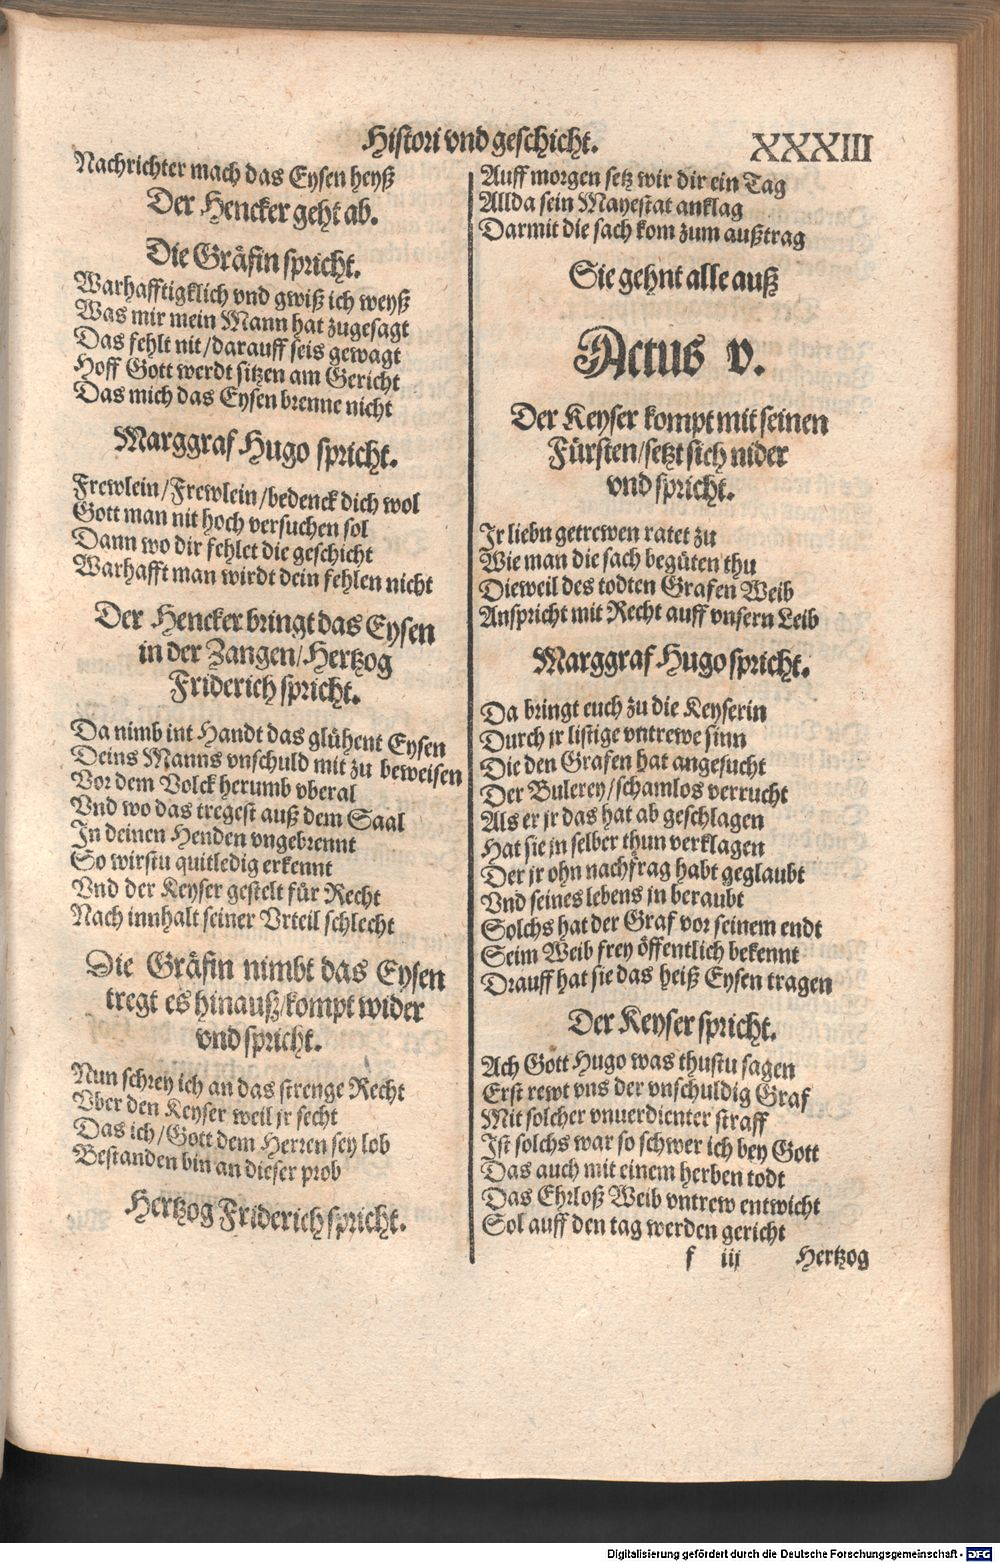 Histori vnd geschicht. XXXIII
Nachrichter mach das Eysen heyß
Der Hencker geht ab.
Die Gräfin spricht.
Warhafftigklich vnd gwiß ich weyß
Was mir mein Mann hat zugesagt
Das fehlt nit/darauff seis gewagt
Hoff Gott werdt sitzen am Gericht
Das mich das Eysen brenne nicht
Marggraf Hugo spricht.
Frewlein/Frewlein/bedenck dich wol
Gott man nit hoch versuchen sol
Dann wo dir fehlet die geschicht
Warhafft man wirdt dein fehlen nicht
Der Hencker bringt das Eysen
in der Zangen/Hertzog
Friderich spricht.
Da nimb int Handt das glühent Eysen
Deins Manns vnschuld mit zu beweisen
Vor dem Volck herumb vberal
Vnd wo das tregest auß dem Saal
In deinen Henden vngebrennt
So wirstu quitledig erkennt
Vnd der Keyser gestelt für Recht
Nach innhalt seiner Vrteil schlecht
Die Gräfin nimbt das Eysen
tregt es hinauß/kompt wider
vnd spricht.
Nun schrey ich an das strenge Recht
Vber den Keyser weil jr secht
Das ich/Gott dem Herren sey lob
Bestanden bin an dieser prob
Hertzog Friderich spricht.
Auff morgen setz wir dir ein Tag
Allda sein Mayestat anklag
Darmit die sach kom zum außtrag
Sie gehnt alle auß
Actus v.
Der Keyser kompt mit seinen
Fürsten/setzt sich nider
vnd spricht.
Jr liebn getrewen ratet zu
Wie man die sach begüten thu
Dieweil des todten Grafen Weib
Anspricht mit Recht auff vnsern Leib
Marggraf Hugo spricht.
Da bringt euch zu die Keyserin
Durch jr listige vntrewe sinn
Die den Grafen hat angesucht
Der Bulerey/schamlos verrucht
Als er jr das hat ab geschlagen
Hat sie in selber thun verklagen
Der jr ohn nachfrag habt geglaubt
Vnd seines lebens jn beraubt
Solchs hat der Graf vor seinem endt
Seim Weib frey öffentlich bekennt
Drauff hat sie das heiß Eysen tragen
Der Keyser spricht.
Ach Gott Hugo was thustu sagen
Erst rewt vns der vnschuldig Graf
Mit solcher vnuerdienter straff
Ist solchs war so schwer ich bey Gott
Das auch mit einem herben todt
Das Ehrloß Weib vntrew entwicht
Sol auff den tag werden gericht
f iij Hertzog
Digitalisierung gefördert durch die Deutsche Forschungsgemeinschaft - DFG